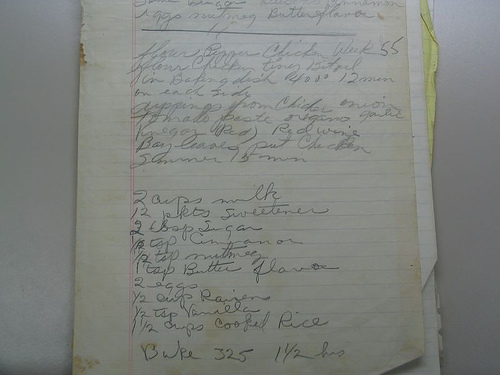 eggs nutmeg Butter flavor
flour Pepper Chicken Week 55
flour Chicken tiny Bit oil
in Baking dish 400° 12 min
on each side
drippings from Chicken onion
Tomato paste oregano garlic
Vinegar (Red) Red wine
Bay leaves, put Chicken
Simmer 15 min
2 cups milk
12 pkts Sweetener
2 tbsp Sugar
tsp Cinnamon
1/2 tsp nutmeg
1 tsp Butter flavor
2 eggs
1/2 cup Raisens
1/2 tsp Vanilla
1 1/2 cups Cooked Rice
Bake 325 1 1/2 hrs